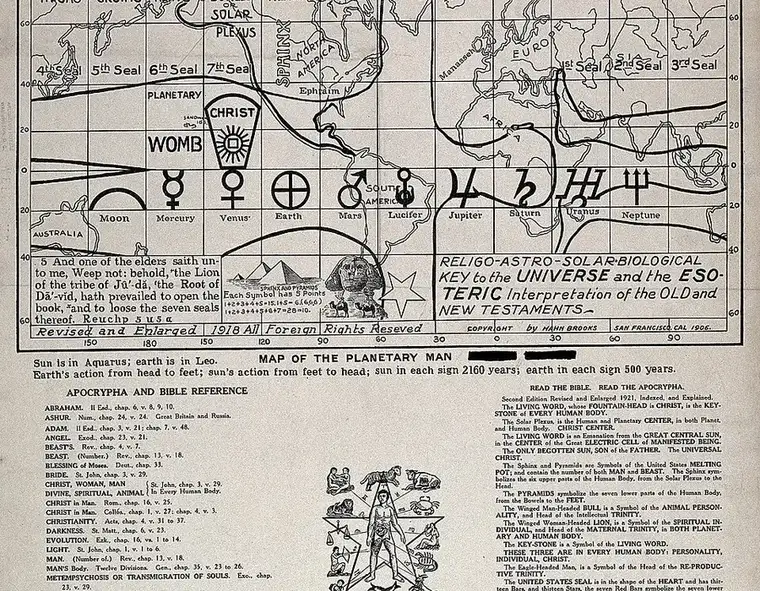 SOLAR
PLEXUS
SPHINX
NORTH
AMERICA
EUROPE
Manasseh
4th Seal 5th Seal 6th Seal 7th Seal
1st Seal 2nd Seal 3rd Seal
Ephraim
PLANETARY
CHRIST
WOMB
AFRICA
SOUTH
AMERICA
Moon Mercury Venus Earth Mars Lucifer Jupiter Saturn Uranus Neptune
AUSTRALIA
60
40
20
0
20
40
60
60
40
20
0
20
40
60
5 And one of the elders saith un-
to me, Weep not: behold, the Lion
of the tribe of Jū'-dă, the Root of
Dā'-vid, hath prevailed to open the
book, and to loose the seven seals
thereof. Reuchp s u s a
SPHINX AND PYRAMIDS
Each Symbol has 5 Points
1+2+3+4+5=15, 1+5=6, (6,6,6)
1+2+3+4+5+6+7=28=10.
RELIGO-ASTRO-SOLAR-BIOLOGICAL
KEY to the UNIVERSE and the ESO-
TERIC Interpretation of the OLD and
NEW TESTAMENTS
Revised and Enlarged 1918 All Foreign Rights Reseved
COPYRIGHT by HAHN BROOKS SAN FRANCISCO, CAL. 1906.
150 120 90 60 30 0 30 60 90
MAP OF THE PLANETARY MAN
Sun is in Aquarus; earth is in Leo.
Earth's action from head to feet; sun's action from feet to head; sun in each sign 2160 years; earth in each sign 500 years.
APOCRYPHA AND BIBLE REFERENCE
ABRAHAM. II Esd., chap. 6, v. 8, 9, 10.
ASHUR. Num., chap. 24, v. 24. Great Britain and Russia.
ADAM. II Esd., chap. 3, v. 21; chap. 7, v. 48.
ANGEL. Exod., chap. 23, v. 21.
BEAST'S. Rev., chap. 4, v. 7.
BEAST. (Number.) Rev., chap. 13, v. 18.
BLESSING of Moses. Deut., chap. 33.
BRIDE. St. John, chap. 3, v. 29.
CHRIST, WOMAN, MAN { St. John, chap. 3, v. 29.
DIVINE, SPIRITUAL, ANIMAL { In Every Human Body.
CHRIST in Man. Rom., chap. 16, v. 25.
CHRIST in Man. Collos., chap. 1, v. 27; chap. 4, v. 3.
CHRISTIANITY. Acts, chap. 4, v. 31 to 37.
DARKNESS. St. Matt., chap. 6, v. 23.
EVOLUTION. Esk., chap. 16, vs. 1 to 14.
LIGHT. St. John, chap. 1, v. 1 to 6.
MAN. (Number of.) Rev., chap. 13, v. 18.
MAN'S Body. Twelve Divisions. Gen., chap. 35, v. 23 to 26.
METEMPSYCHOSIS OR TRANSMIGRATION OF SOULS. Exo., chap.
23, v. 29.
READ THE BIBLE. READ THE APOCRYPHA.
Second Edition Revised and Enlarged 1921, Indexed, and Explained.
The LIVING WORD, whose FOUNTAIN-HEAD is CHRIST, is the KEY-
STONE of EVERY HUMAN BODY.
The Solar Plexus, is the Human and Planetary CENTER, in both Planet,
and Human Body. CHRIST CENTER.
The LIVING WORD is an Emanation from the GREAT CENTRAL SUN,
in the CENTER of the Great ELECTRIC CELL of MANIFESTED BEING.
The ONLY BEGOTTEN SUN, SON of the FATHER. The UNIVERSAL
CHRIST.
The Sphinx and Pyramids are Symbols of the United States MELTING
POT; and contain the number of both MAN and BEAST. The Sphinx sym-
bolizes the six upper parts of the Human Body, from the Solar Plexus to the
Head.
The PYRAMIDS symbolize the seven lower parts of the Human Body,
from the Bowels to the FEET.
The Winged Man-Headed BULL is a Symbol of ANIMAL PERSON-
ALITY, and Head of the Intellectual TRINITY.
The Winged Woman-Headed LION, is a Symbol of the SPIRITUAL IN-
DIVIDUAL, and Head of the MATERNAL TRINITY, in BOTH PLANET-
ARY AND HUMAN BODY.
The KEY-STONE is a Symbol of the LIVING WORD.
THESE THREE ARE IN EVERY HUMAN BODY: PERSONALITY,
INDIVIDUAL, CHRIST.
The Eagle-Headed Man, is a Symbol of the Head of the RE-PRODUC-
TIVE TRINITY.
The UNITED STATES SEAL is in the shape of the HEART and has thir-
teen Bars, and thirteen Stars, the seven Red Bars symbolize the seven lower